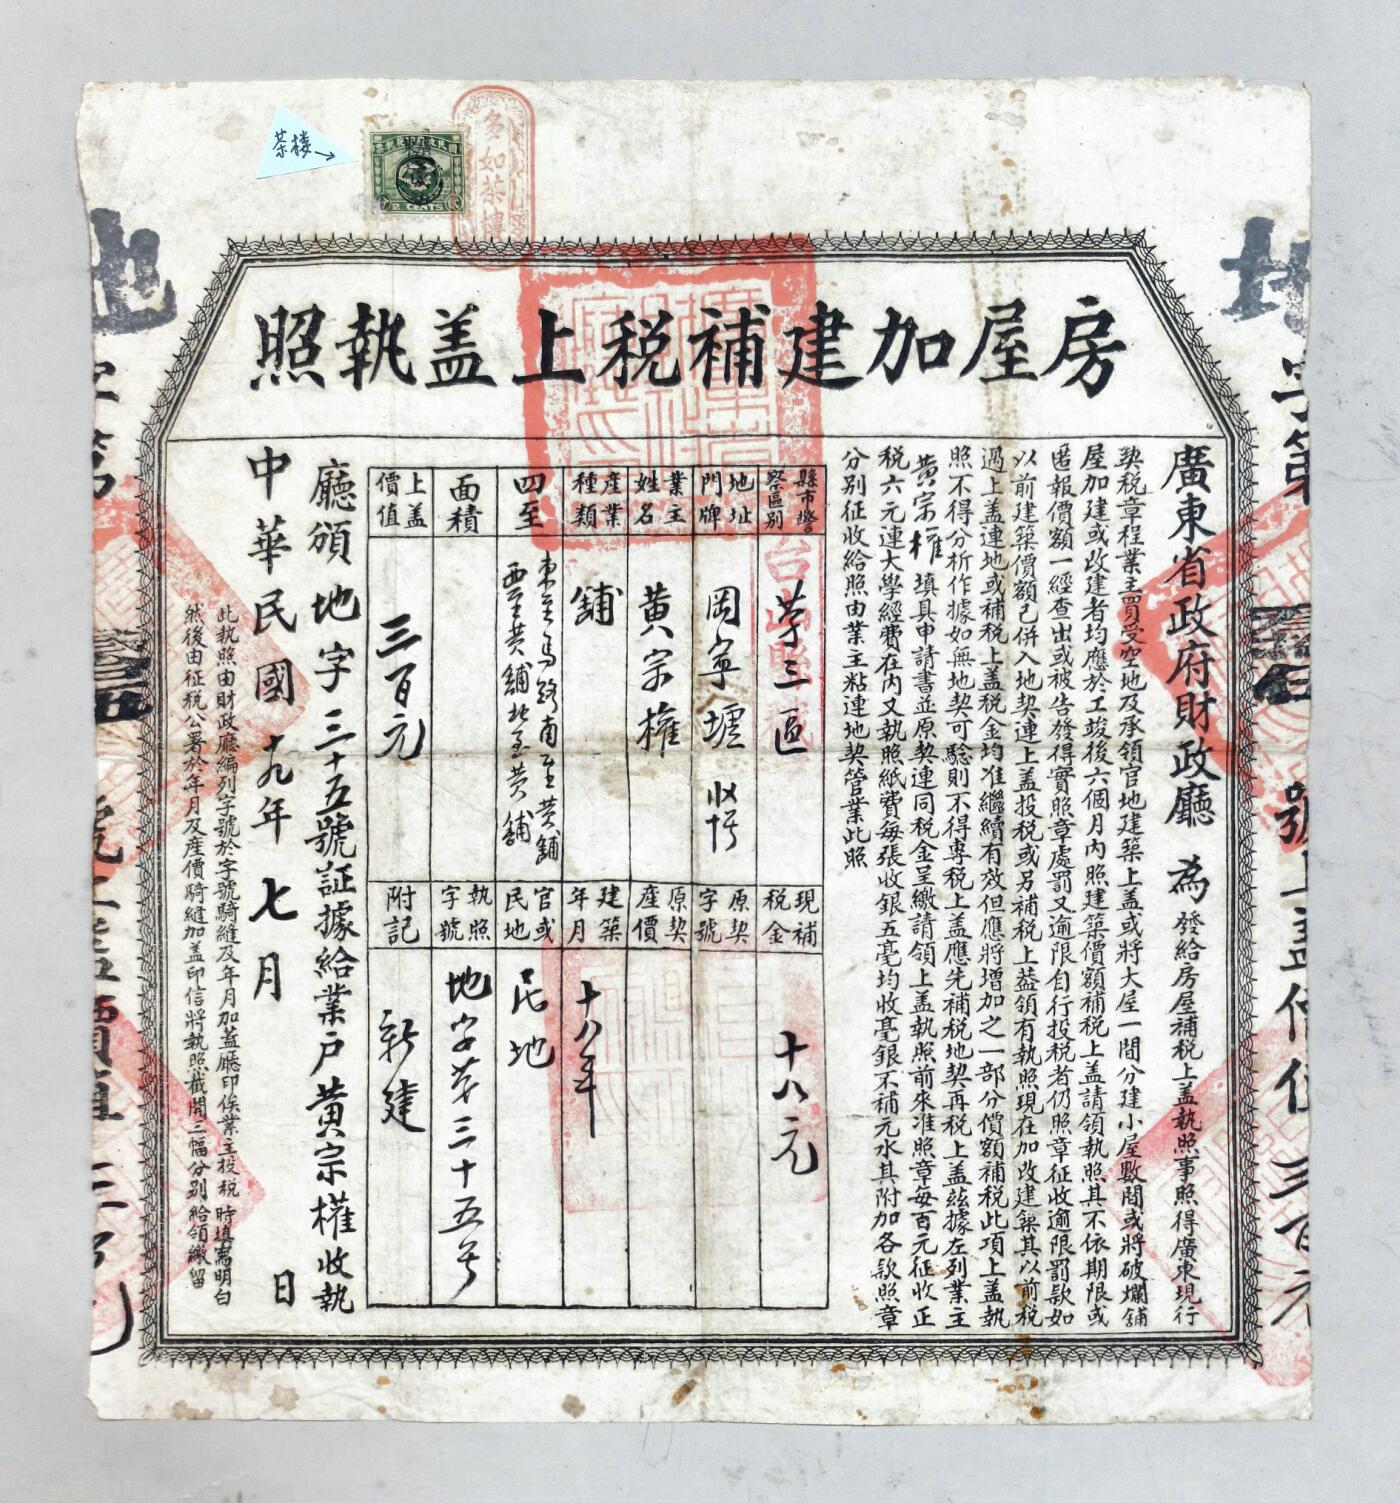 茶楼→
多如茶樓
2 CENTS
房屋加建補税上盖執照
廣東省政府財政廳 為 發給房屋補税上盖執照事照得廣東現行
契税章程業主買受空地及承領官地建築上盖或將大屋一間分建小屋數間或將破爛舖
屋加建或改建者均應於工竣後六個月內照建築價額補税上盖請領執照其不依期限或
匿報價額一經查出或被告發得實照章處罰又逾限自行投税者仍照章征收逾限罰款如
以前建築價額已併入地契連上盖投税或另補税上盖領有執照現在加改建築其以前税
過上盖連地或補税上盖税金均准繼續有效但應將增加之一部分價額補税此項上盖執
照不得分析作據如無地契可驗則不得專税上盖應先補税地契再税上盖兹據左列業主
黃宗權 填具申請書並原契連同税金呈繳請領上盖執照前來准照章每百元征收正
税六元連大學經費在內又執照紙費每張收銀五毫均收毫銀不補元水其附加各款照章
分別征收給照由業主粘連地契營業此照
縣市警察區別 㐧三區
地址門牌 岡寧墟
業主姓名 黃宗權
產業種類 舖
四至 東至馬路南至黃舖西至黃舖北至黃舖
面積
上盖價值 三百元
現補税金 十八元
原契字號
原契產價
建築年月 十八年
官或民地 民地
執照字號 地字㐧三十五号
附記 新建
廳頒地字三十五號証據給業戶黃宗權收執
中華民國十九年七月 日
此執照由財政廳編列字號於字號騎縫及年月加蓋廳印俟業主投税時填寫明白
然後由征税公署於年月及產價騎縫加盖印信將執照截開三幅分別給領繳留